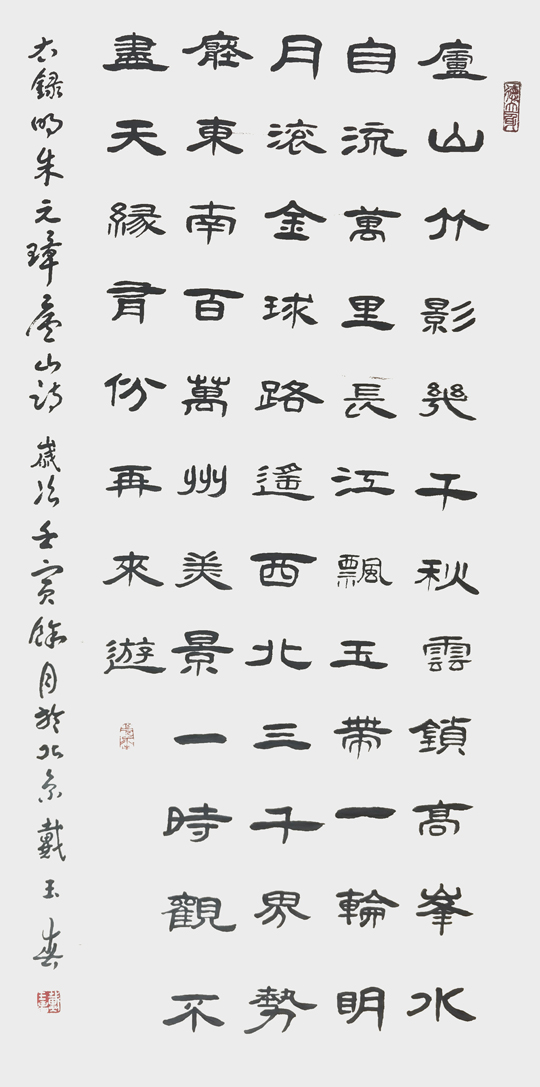 廬山竹影幾千秋雲鎖高峯水
自流萬里長江飄玉帶一輪明
月滚金球路遙西北三千界勢
壓東南百萬州美景一時觀不
盡天緣有份再來遊
右録明朱元璋廬山詩 歲次壬寅餘月於北京戴玉春